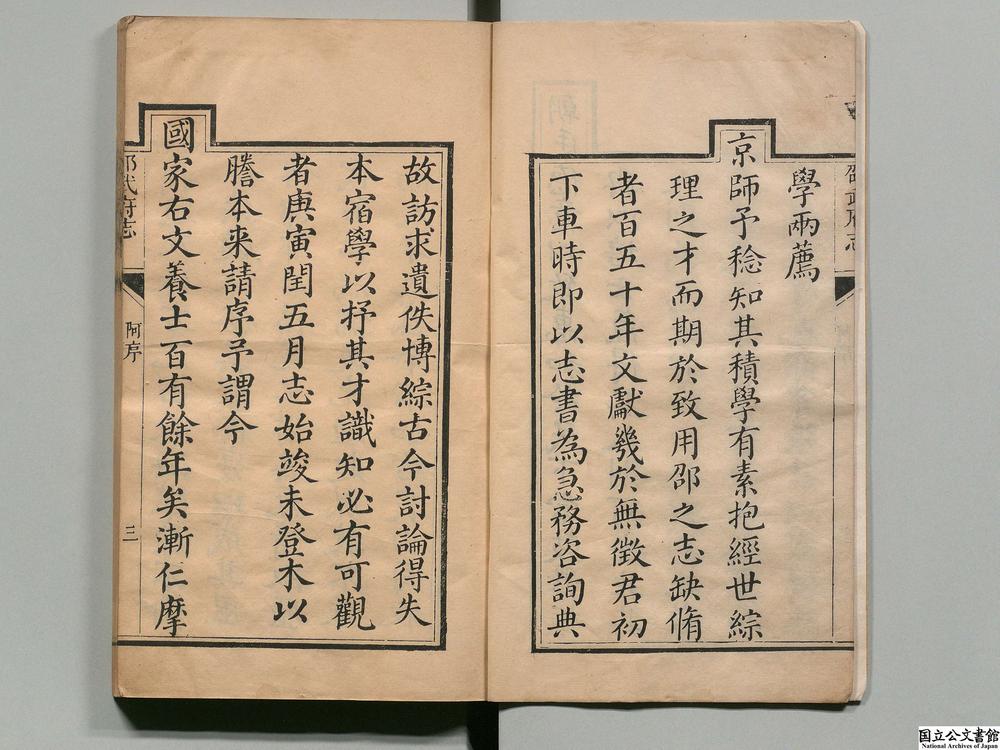 邵武府志
學兩薦
京師予稔知其積學有素抱經世綜
理之才而期於致用邵之志缺脩
者百五十年文獻幾於無徵君初
下車時即以志書為急務咨詢典
故訪求遺佚博綜古今討論得失
本宿學以抒其才識知必有可觀
者庚寅閏五月志始竣未登木以
謄本来請序予謂今
國家右文養士百有餘年矣漸仁摩
邵武府志
阿序
三
国立公文書館
National Archives of Japan